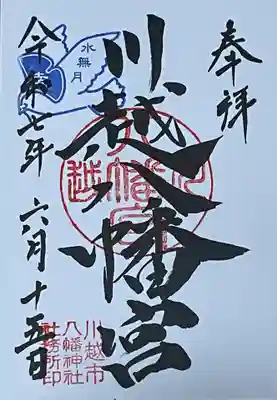 奉拝
川越八幡宮
水無月
令和七年 六月十五日
川越市
八幡神社
社務所印